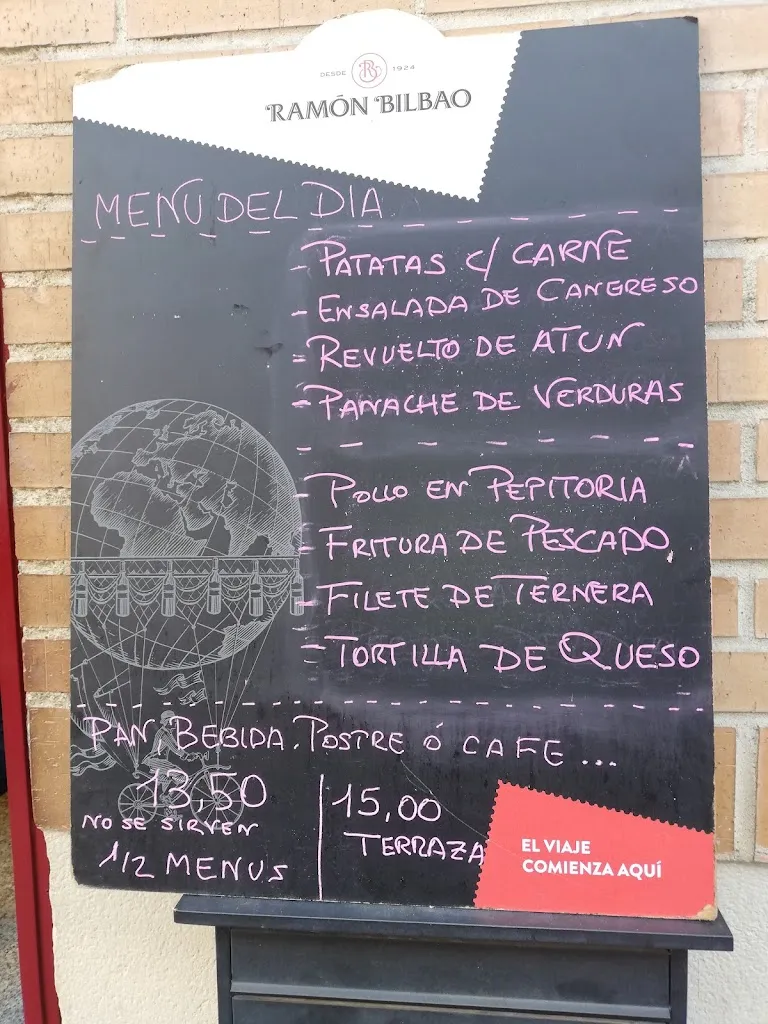 DESDE 1924
RAMÓN BILBAO
MENU DEL DIA
- PATATAS C/ CARNE
- ENSALADA DE CANGRESO
- REVUELTO DE ATUN
- PANACHE DE VERDURAS
- POLLO EN PEPITORIA
- FRITURA DE PESCADO
- FILETE DE TERNERA
- TORTILLA DE QUESO
PAN, BEBIDA. POSTRE Ó CAFE ...
13,50
NO SE SIRVEN
1/2 MENUS
15,00
TERRAZA
EL VIAJE
COMIENZA AQUÍ